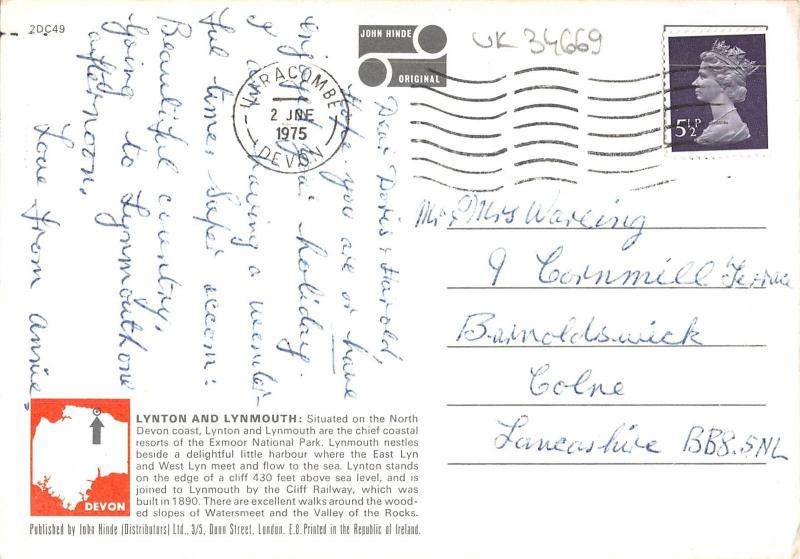 2DC49
JOHN HINDE
ORIGINAL
UK 34669
ILFRACOMBE
2 JNE
1975
DEVON
5½P
Dear Doris & Harold,
Hope you are or have
enjoyed your holiday.
I am having a wonder-
ful time, Super accom:
Beautiful country,
Going to Lynmouth one
afternoon,
Love from Annie,
Mr & Mrs Wareing
9 Cornmill Terrace
Barnoldswick
Colne
Lancashire BB8.5NL
DEVON
LYNTON AND LYNMOUTH: Situated on the North
Devon coast, Lynton and Lynmouth are the chief coastal
resorts of the Exmoor National Park. Lynmouth nestles
beside a delightful little harbour where the East Lyn
and West Lyn meet and flow to the sea. Lynton stands
on the edge of a cliff 430 feet above sea level, and is
joined to Lynmouth by the Cliff Railway, which was
built in 1890. There are excellent walks around the wood-
ed slopes of Watersmeet and the Valley of the Rocks.
Published by John Hinde (Distributors) Ltd., 3/5, Dunn Street, London. E.8. Printed in the Republic of Ireland.